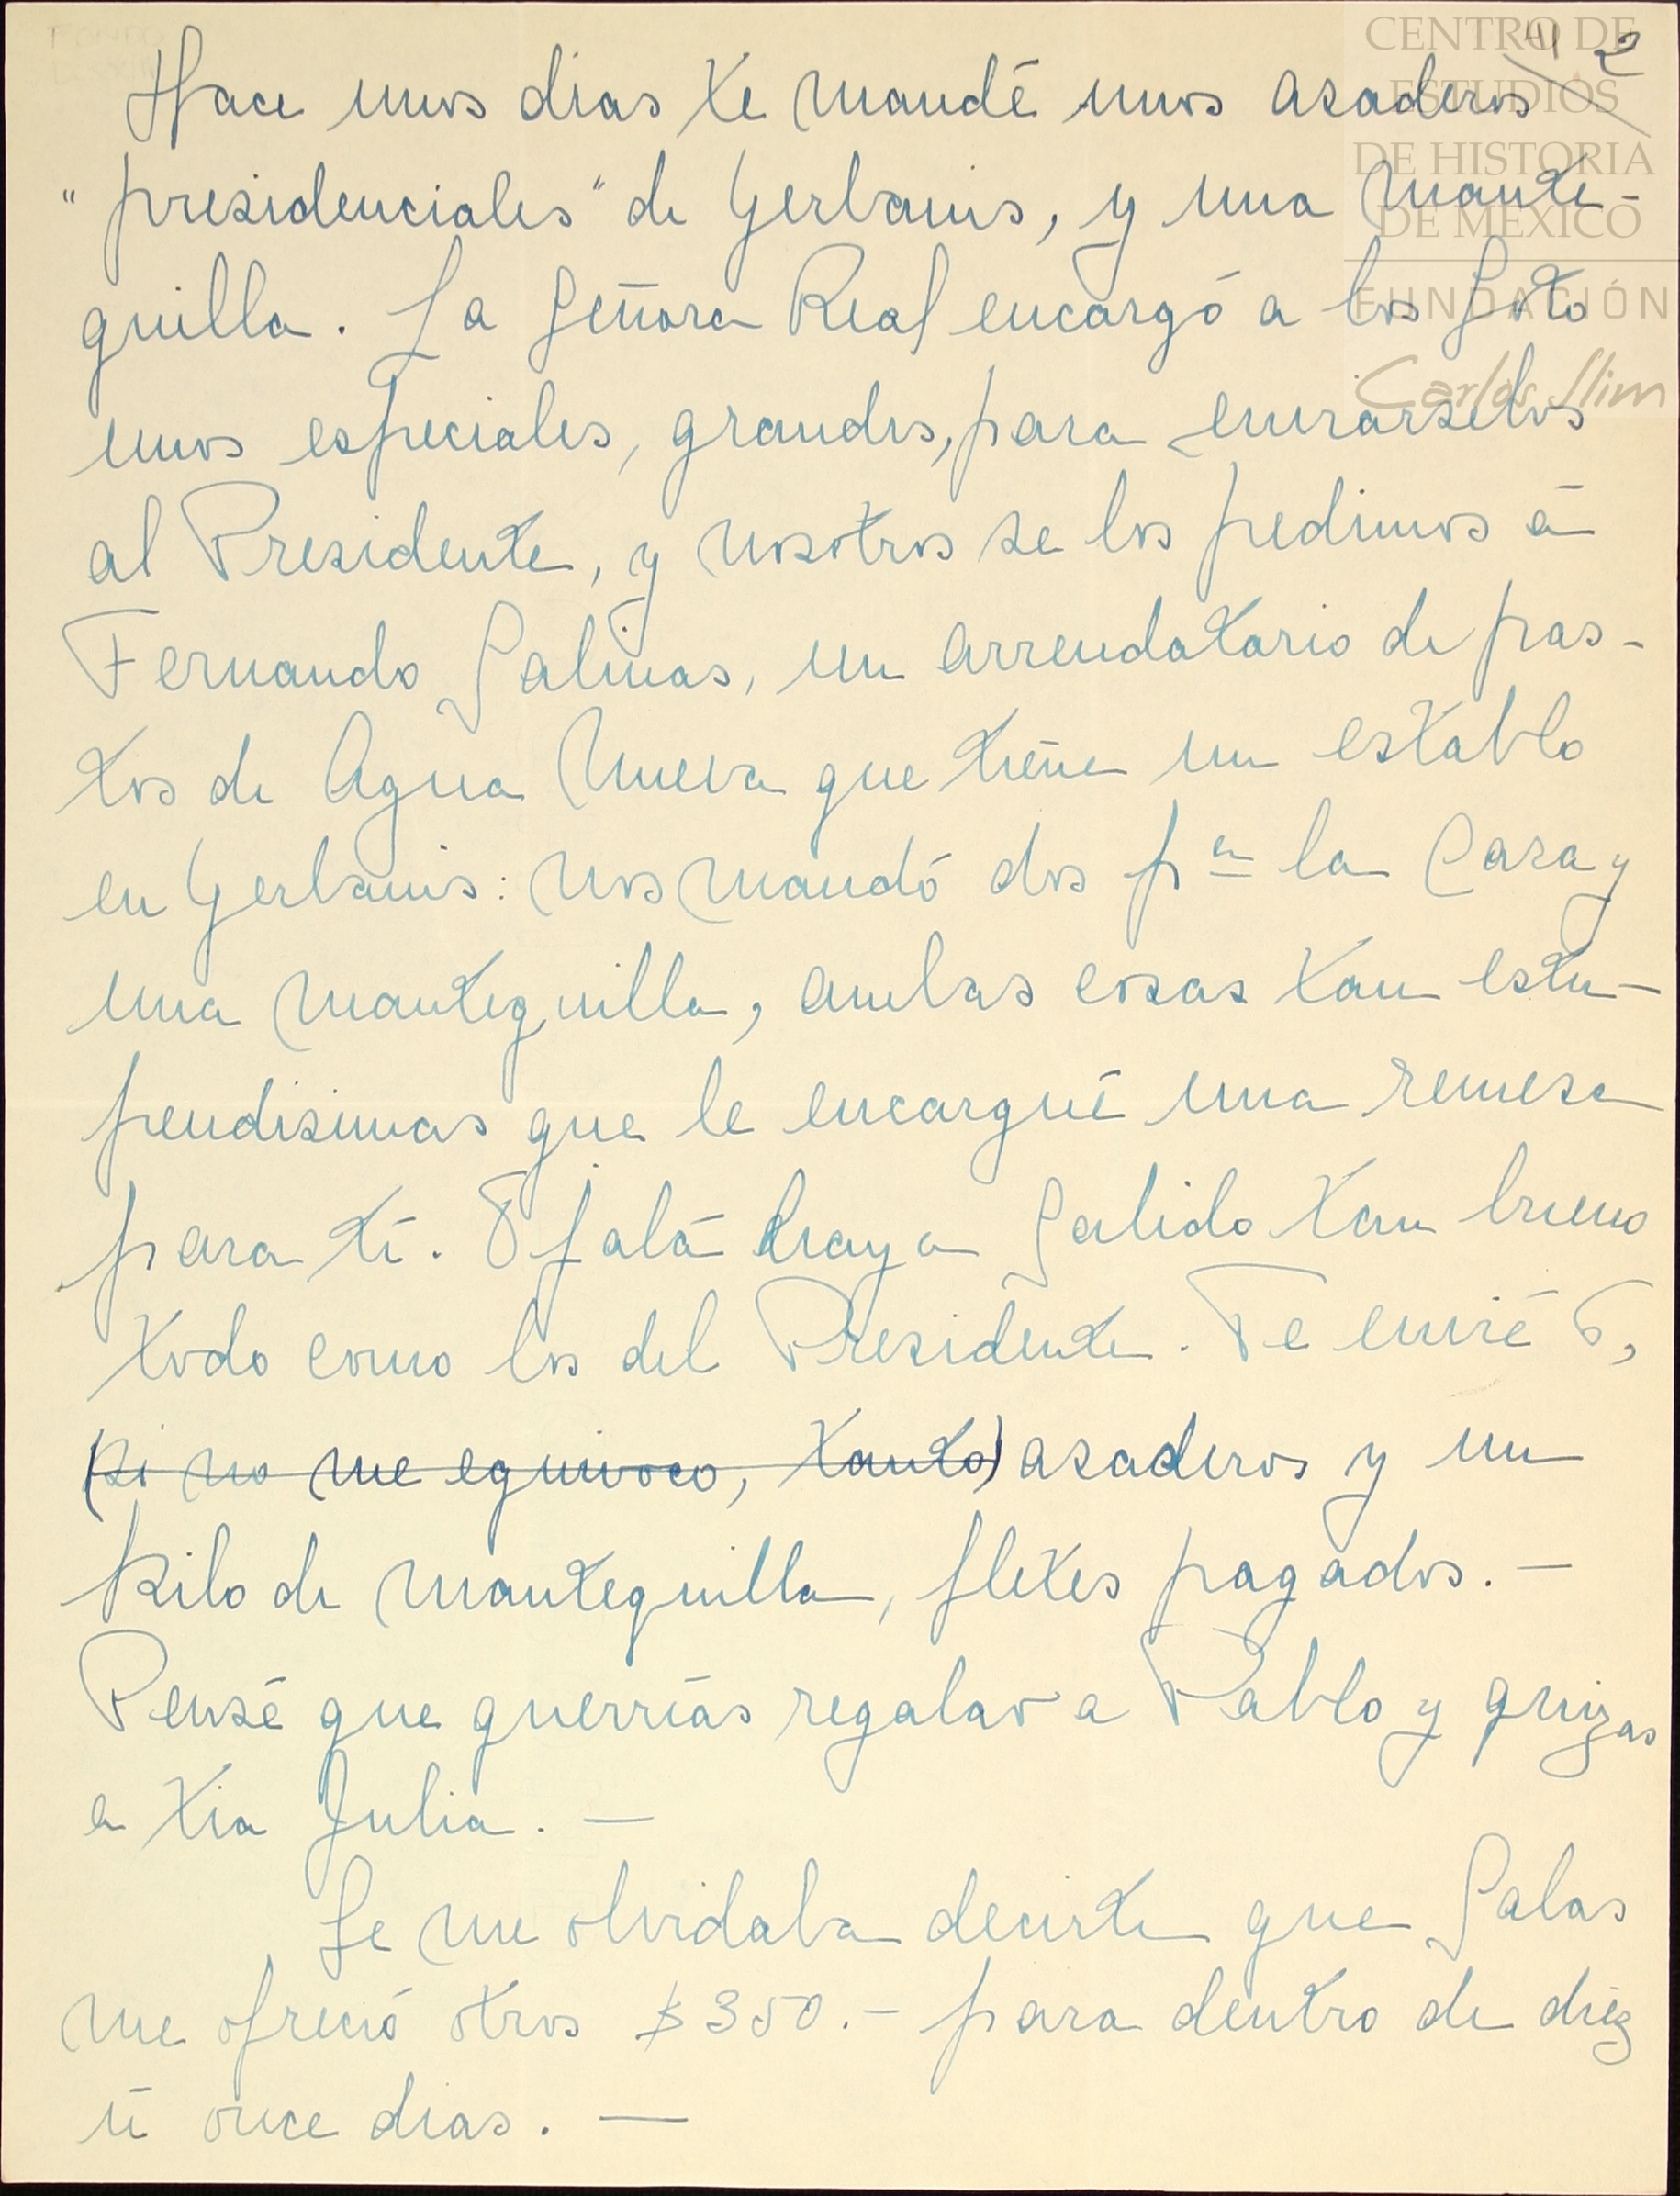 CENTRO DE
ESTUDIOS
DE HISTORIA
DE MEXICO
FUNDACIÓN
Carlos Slim
41 2
Hace unos dias te mandé unos asaderos
"presidenciales" de Yerbanis, y una mante-
quilla. La Señora Real encargó a los Soto
unos especiales, grandes, para enviarselos
al Presidente, y nosotros se los pedimos á
Fernando Salinas, un arrendatario de pas-
tos de Agua Nueva que tiene un establo
en Yerbanis: nos mandó dos pa la Casa y
una mantequilla, ambas cosas tan estu-
pendisimas que le encargué una remesa
para tí. Ojalá haya salido tan bueno
todo como los del Presidente. Te envié 6,
(si no me equivoco, tanto) asaderos y un
kilo de mantequilla, fletes pagados. —
Pensé que querrías regalar a Pablo y quizas
a tia Julia. —
Se me olvidaba decirte que Salas
me ofreció otros $350.— para dentro de diez
ú once dias. —